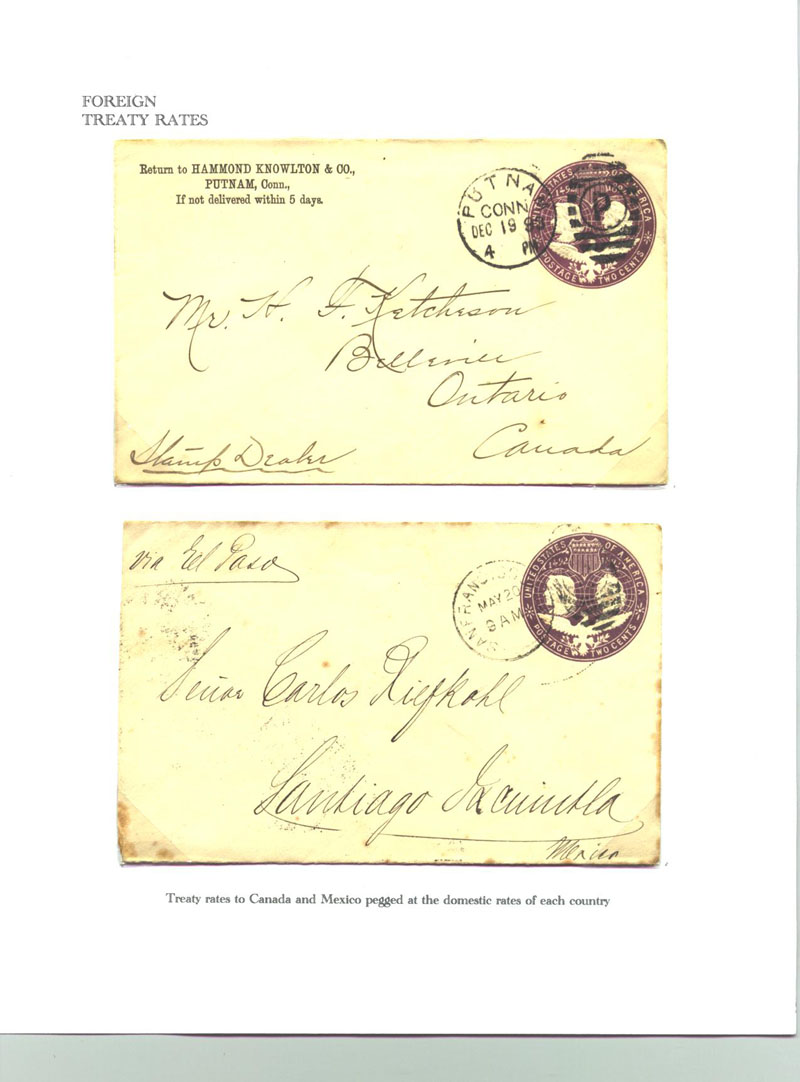 FOREIGN
TREATY RATES
Return to HAMMOND KNOWLTON & CO.,
PUTNAM, Conn.,
If not delivered within 5 days.
PUTNA
CONN
DEC 19 93
4 PM
UNITED STATES OF AMERICA
1492
POSTAGE TWO CENTS
P
Mr. H. F. Ketcheson
Belleville
Ontario
Canada
Stamp Dealer
via El Paso
SAN FRANCISCO
MAY 20
9 AM
UNITED STATES OF AMERICA
1492
POSTAGE TWO CENTS
Señor Carlos Riefkohl
Santiago Ixcuintla
Mexico
Treaty rates to Canada and Mexico pegged at the domestic rates of each country